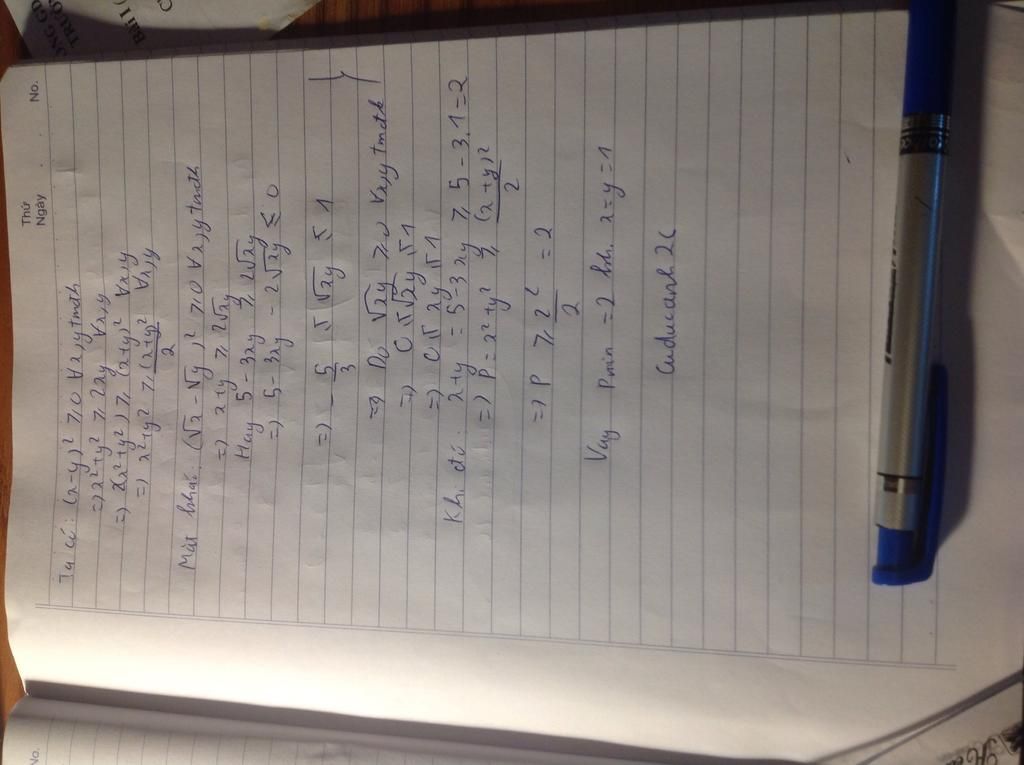 No.
Thứ
Ngày
Ta có: (x-y)² ≥ 0 ∀x,y tmđk
=> x²+y² ≥ 2xy ∀x,y
=> 2(x²+y²) ≥ (x+y)² ∀x,y
=> x²+y² ≥ (x+y)²/2 ∀x,y
Mặt khác: (√x - √y)² ≥ 0 ∀x,y tmđk
=> x+y ≥ 2√xy
Hay 5-3xy ≥ 2√xy
=> 5-3xy - 2√xy ≤ 0
=> -5/3 ≤ √xy ≤ 1
=> Do √xy ≥ 0 ∀x,y tmđk
=> 0 ≤ √xy ≤ 1
=> 0 ≤ xy ≤ 1
Khi đó: x+y = 5-3xy ≥ 5-3.1=2
=> P = x²+y² ≥ (x+y)²/2
=> P ≥ 2²/2 = 2
Vậy Pmin = 2 khi x=y=1
Cuducanh2(
No.